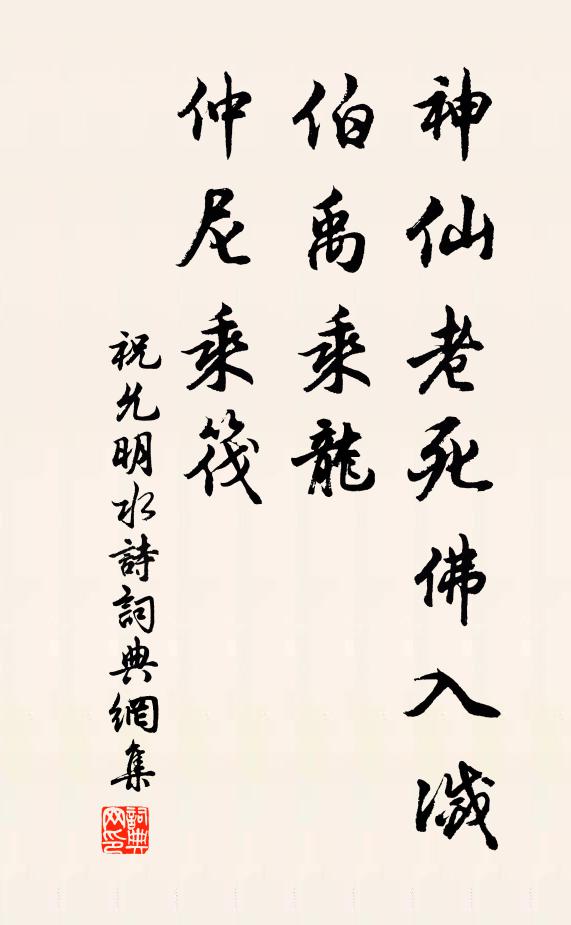 神仙老死佛入滅
伯禹乘龍
仲尼乘筏
祝允明水詩詞典網集
詞典網印